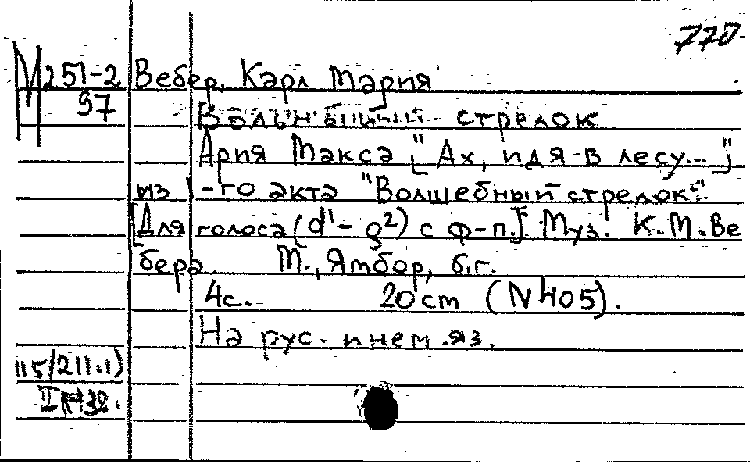 770
М251-2 Вебер, Карл Мария
97
Волшебный стрелок
Ария Макса ["Ах, идя в лесу..."]
из 1-го акта "Волшебный стрелок"
[Для голоса (d¹-g²) с ф-п.] Муз. К.М.Ве
бера М., Ямбор, б.г.
4с. 20 cm (N405).
На рус. и нем. яз.
115/211.1)